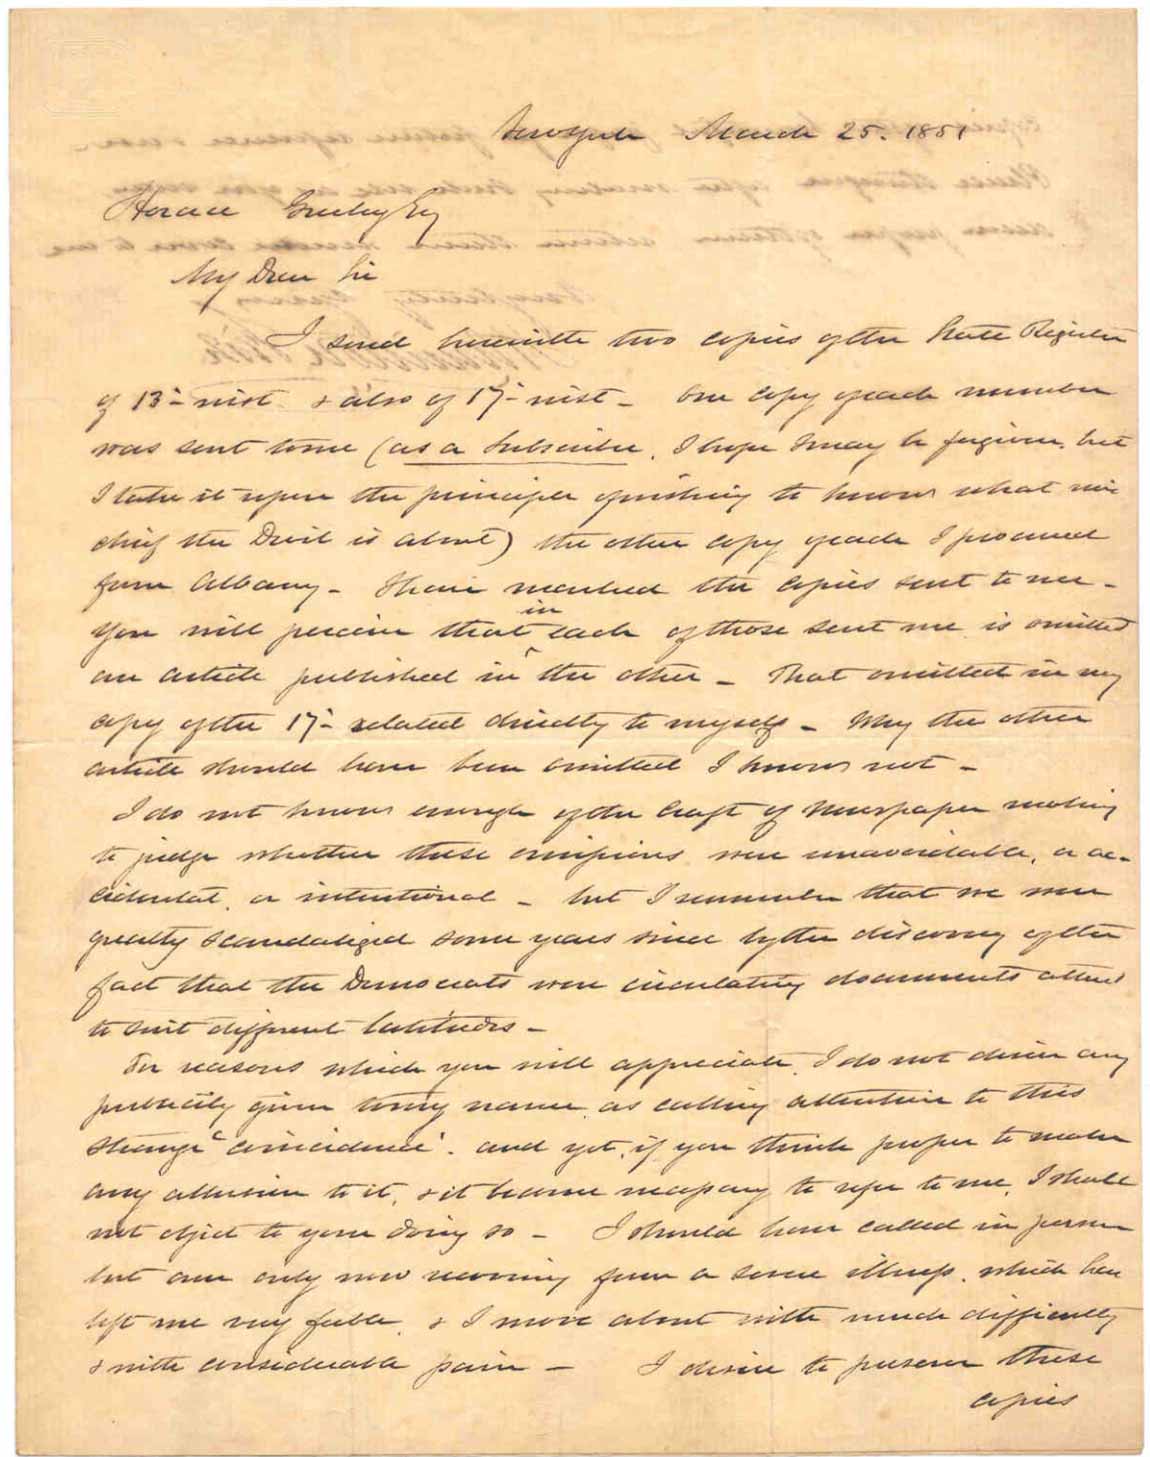 New York March 25. 1851
Horace Greeley Esq
My Dear Sir
I send herewith two copies of the State Register
of 13th inst. & also of 17th inst - One copy of each number
was sent to me (as a Subscriber, I hope I may be forgiven, but
I take it upon the principle of wishing to know what mis
chief the Devil is about) the other copy of each I procured
from Albany - I have marked the copies sent to me -
You will perceive that in each of those sent me is omitted
an article published in the other - That omitted in my
copy of the 17th related directly to myself - Why the other
article should have been omitted I know not -
I do not know enough of the craft of Newspaper making
to judge whether these omissions were unavoidable, or ac-
cidental, or intentional - but I remember that we were
greatly scandalized some years since by the discovery of the
fact that the Democrats were circulating documents altered
to suit different latitudes -
For reasons which you will appreciate, I do not desire any
publicity given to my name, as calling attention to this
strange 'coincidence'. and yet, if you think proper to make
any allusion to it, & it became necessary to refer to me, I shall
not object to your doing so - I should have called in person
but am only now recovering from a severe illness, which has
left me very feeble, & I move about with much difficulty
& with considerable pain - I desire to preserve these
copies